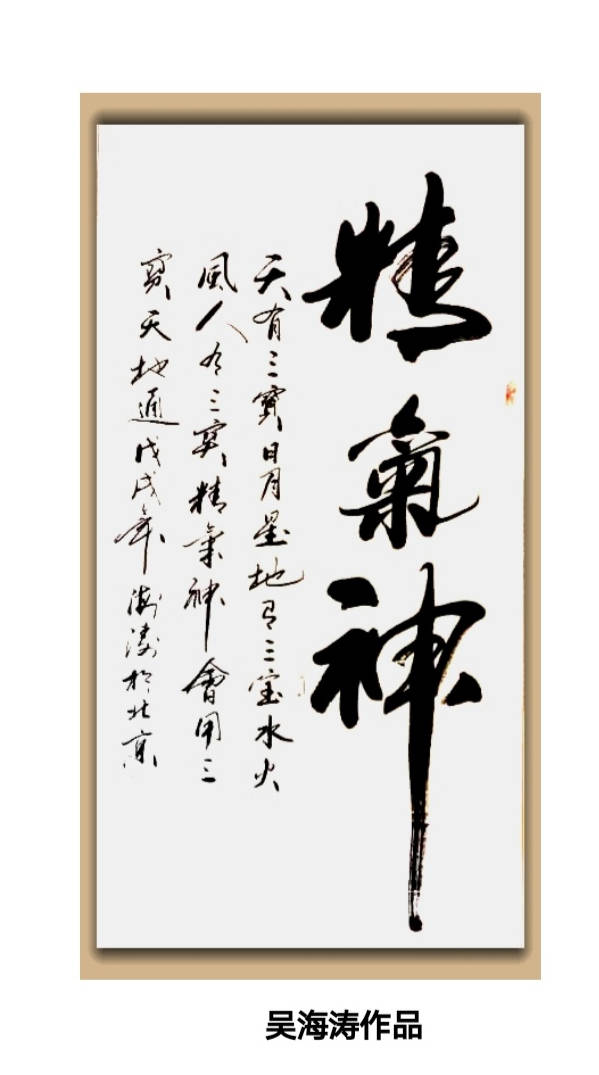 精氣神
天有三寶日月星地有三宝水火
風人有三寶精氣神會用三
寶天地通戊戌年海濤於北京
吴海涛作品